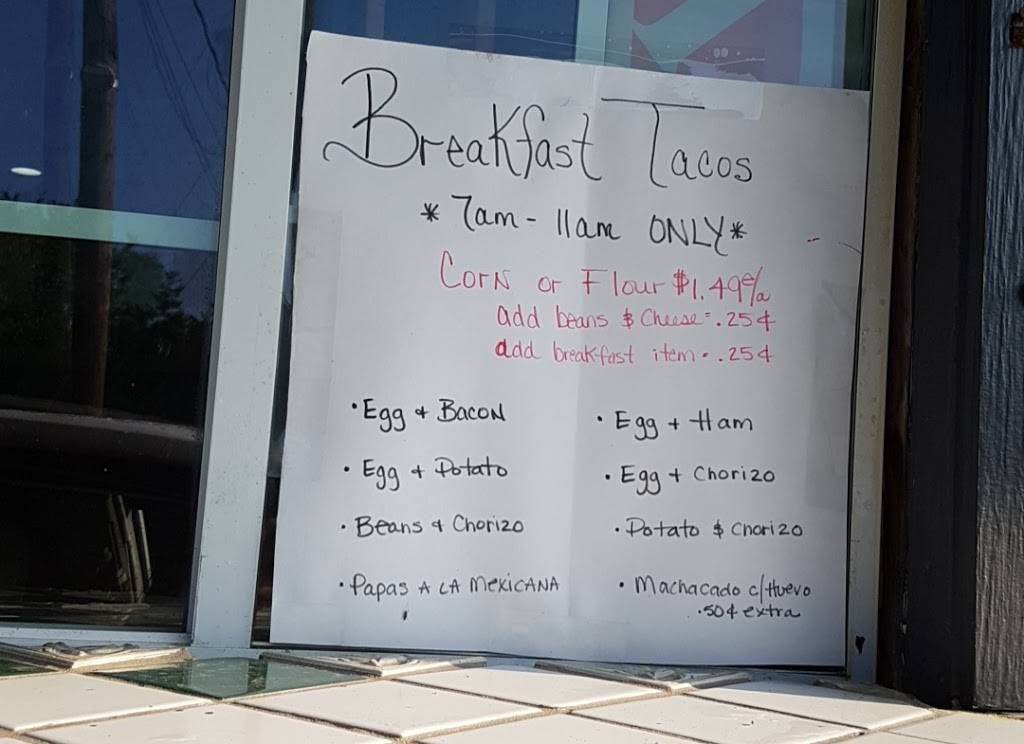 Breakfast Tacos
* 7am - 11am ONLY *
Corn or Flour $1.49 e/a
add beans & Cheese = .25¢
add breakfast item - .25¢
• Egg + Bacon
• Egg + Ham
• Egg + Potato
• Egg + Chorizo
• Beans + Chorizo
• Potato & Chorizo
• Papas A LA MexicANA
• Machacado c/Huevo
.50¢ extra